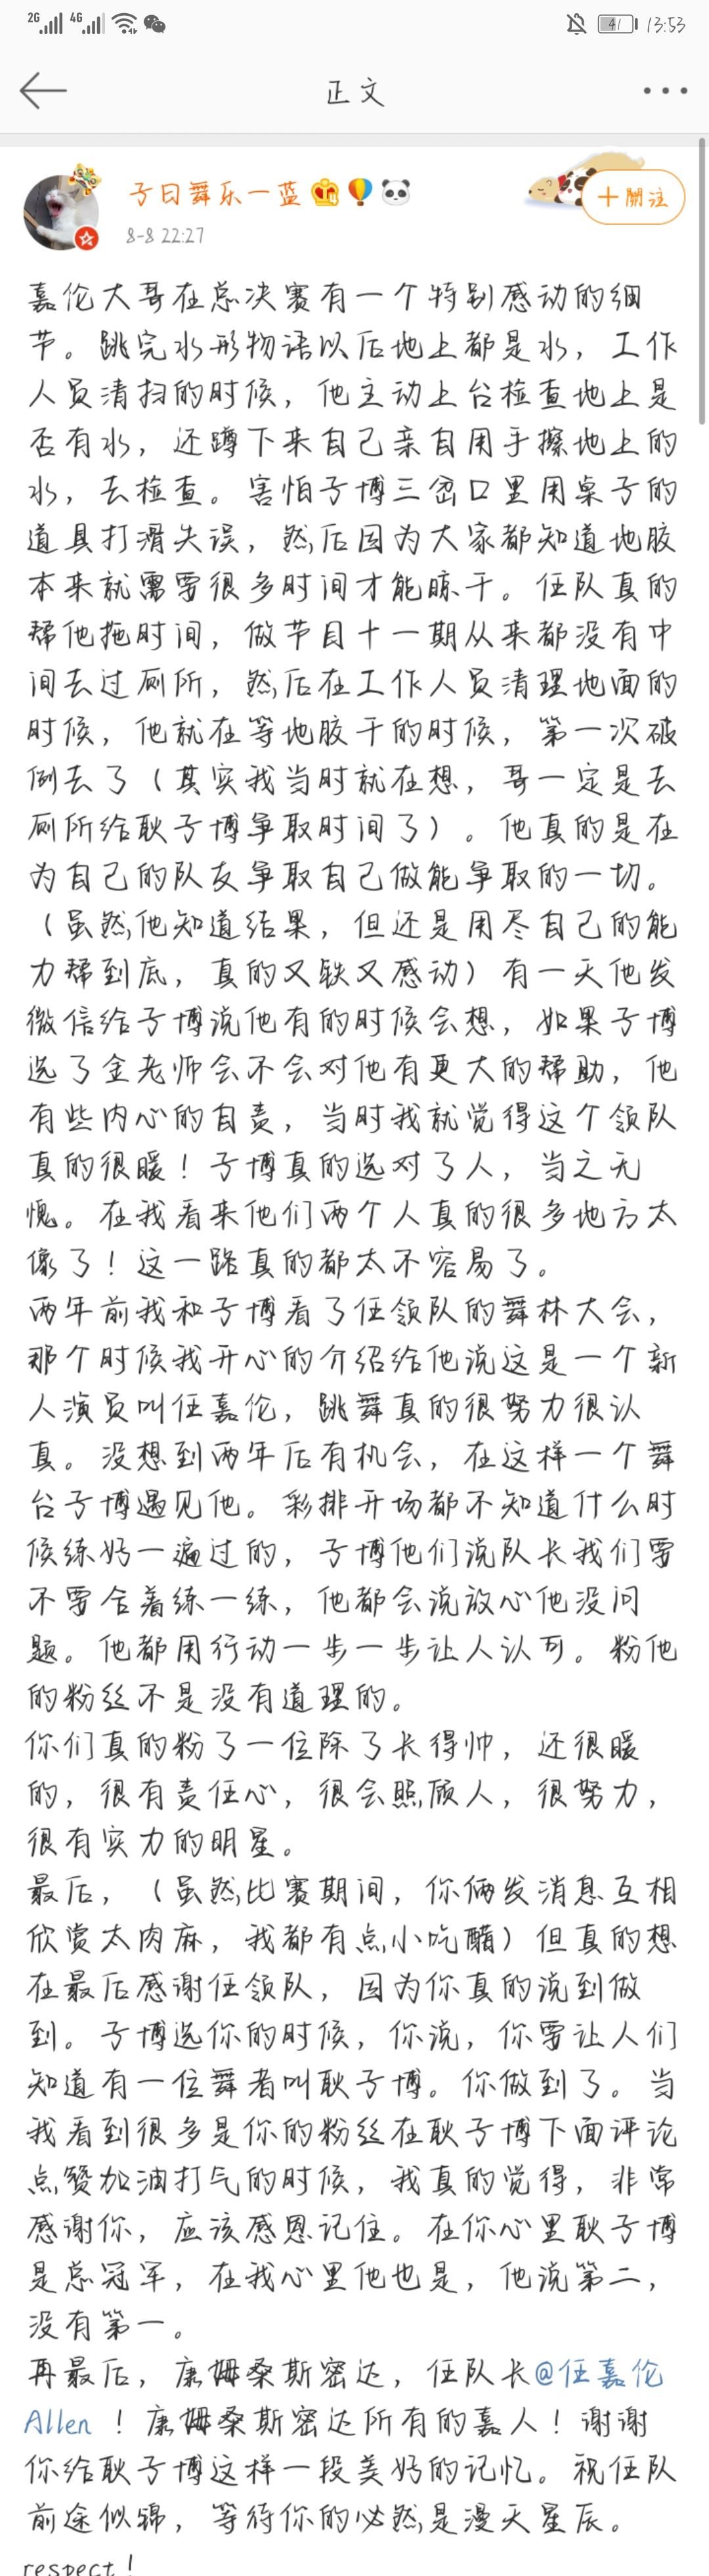 2G 4G 41 13:53
正文
子曰舞乐一蓝
8-8 22:27
+關注
嘉伦大哥在总决赛有一个特别感动的细
节。跳完水形物语以后地上都是水，工作
人员清扫的时候，他主动上台检查地上是
否有水，还蹲下来自己亲自用手擦地上的
水，去检查。害怕子博三岔口里用桌子的
道具打滑失误，然后因为大家都知道地胶
本来就需要很多时间才能晾干。任队真的
帮他拖时间，做节目十一期从来都没有中
间去过厕所，然后在工作人员清理地面的
时候，他就在等地胶干的时候，第一次破
例去了（其实我当时就在想，哥一定是去
厕所给耿子博争取时间了）。他真的是在
为自己的队友争取自己做能争取的一切。
（虽然他知道结果，但还是用尽自己的能
力帮到底，真的又轶又感动）有一天他发
微信给子博说他有的时候会想，如果子博
选了金老师会不会对他有更大的帮助，他
有些内心的自责，当时我就觉得这个领队
真的很暖！子博真的选对了人，当之无
愧。在我看来他们两个人真的很多地方太
像了！这一路真的都太不容易了。
两年前我和子博看了任领队的舞林大会，
那个时候我开心的介绍给他说这是一个新
人演员叫任嘉伦，跳舞真的很努力很认
真。没想到两年后有机会，在这样一个舞
台子博遇见他。彩排开场都不知道什么时
候练好一遍过的，子博他们说队长我们要
不要合着练一练，他都会说放心他没问
题。他都用行动一步一步让人认可。粉他
的粉丝不是没有道理的。
你们真的粉了一位除了长得帅，还很暖
的，很有责任心，很会照顾人，很努力，
很有实力的明星。
最后，（虽然比赛期间，你俩发消息互相
欣赏太肉麻，我都有点小吃醋）但真的想
在最后感谢任领队，因为你真的说到做
到。子博选你的时候，你说，你要让人们
知道有一位舞者叫耿子博。你做到了。当
我看到很多是你的粉丝在耿子博下面评论
点赞加油打气的时候，我真的觉得，非常
感谢你，应该感恩记住。在你心里耿子博
是总冠军，在我心里他也是，他说第二，
没有第一。
再最后，康姆桑斯密达，任队长@任嘉伦
Allen ！康姆桑斯密达所有的嘉人！谢谢
你给耿子博这样一段美好的记忆。祝任队
前途似锦，等待你的必然是漫天星辰。
respect！